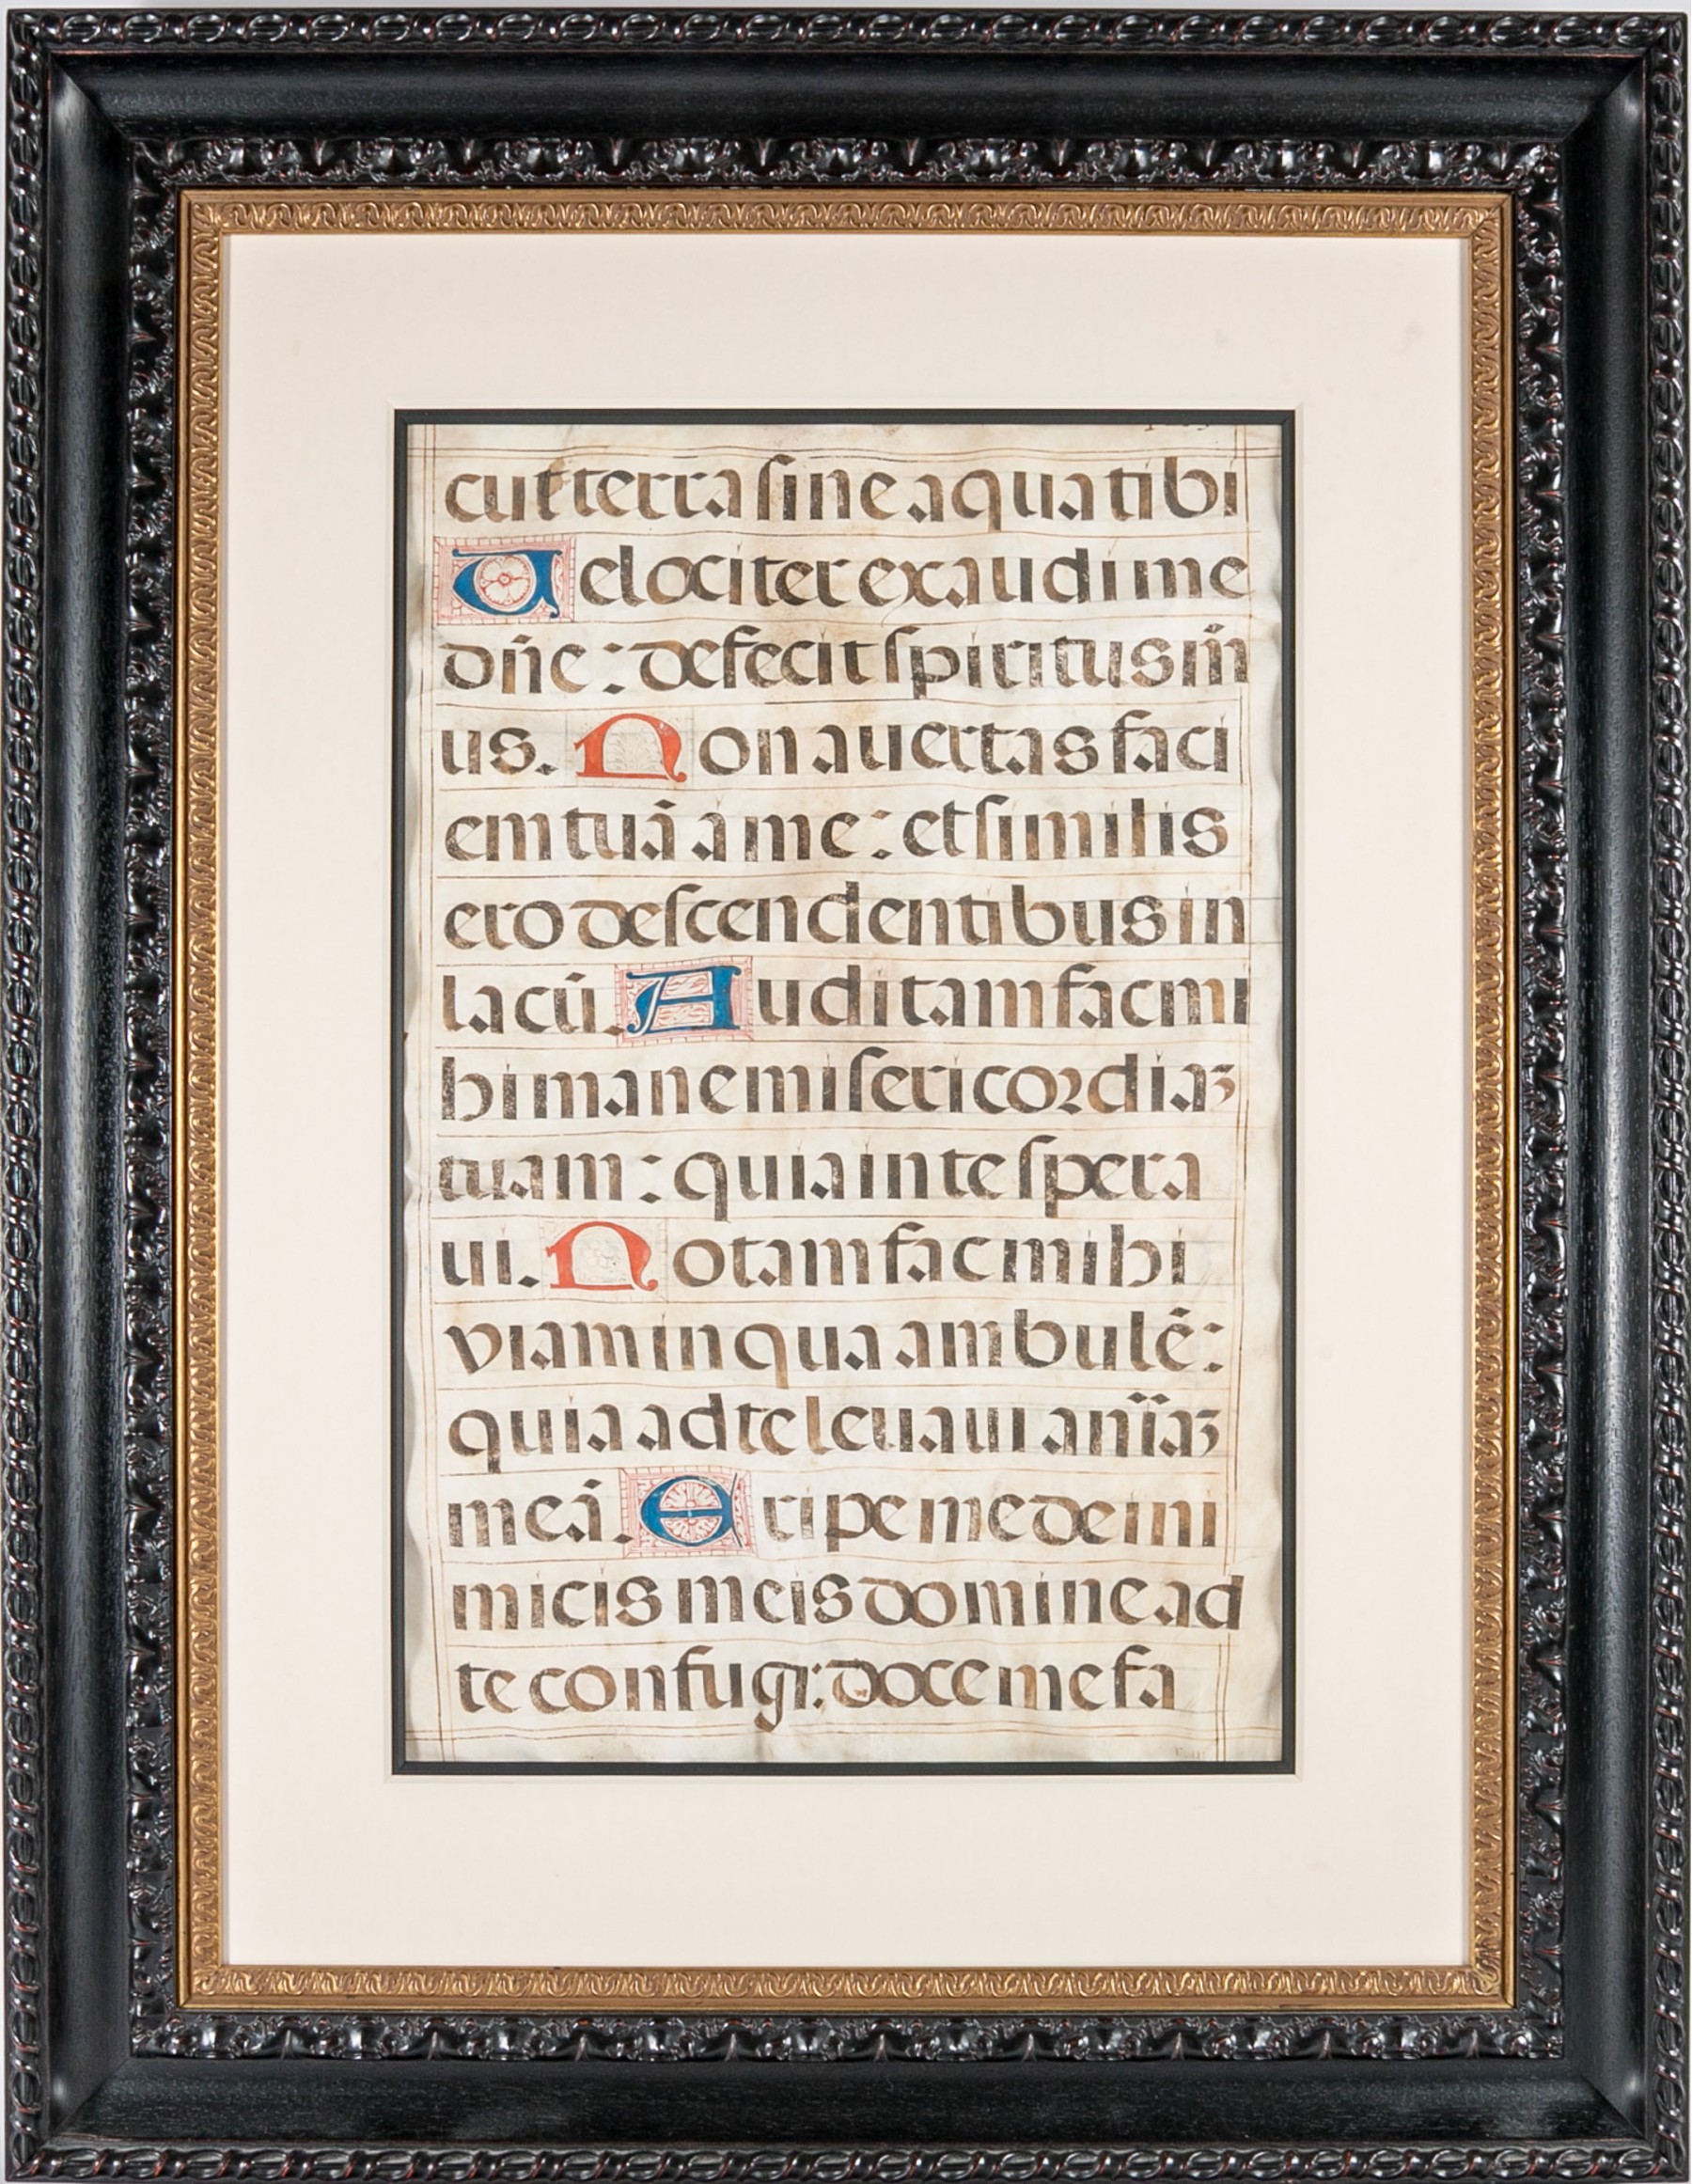 cut terra sine aqua tibi
Velociter exaudi me
dn̄e : defecit spiritus m̄
us. Non avertas faci
em tuā a me : et similis
ero descendentibus in
lacū. Auditam fac mi
bi mane misericordiaʒ
tuam : quia in te spera
ui. Notam fac mibi
viam in qua ambulē :
quia ad te leuaui anīaʒ
meā. Eripe me de ini
micis meis domine ad
te confugi : doce me fa